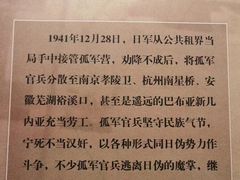 1941年12月28日，日军从公共租界当
局手中接管孤军营，劝降不成后，将孤军
官兵分散至南京孝陵卫、杭州南星桥、安
徽芜湖裕溪口，甚至是遥远的巴布亚新几
内亚充当劳工。孤军官兵坚守民族气节，
宁死不当汉奸，以各种形式同日伪势力作
斗争，不少孤军官兵逃离日伪的魔掌，继